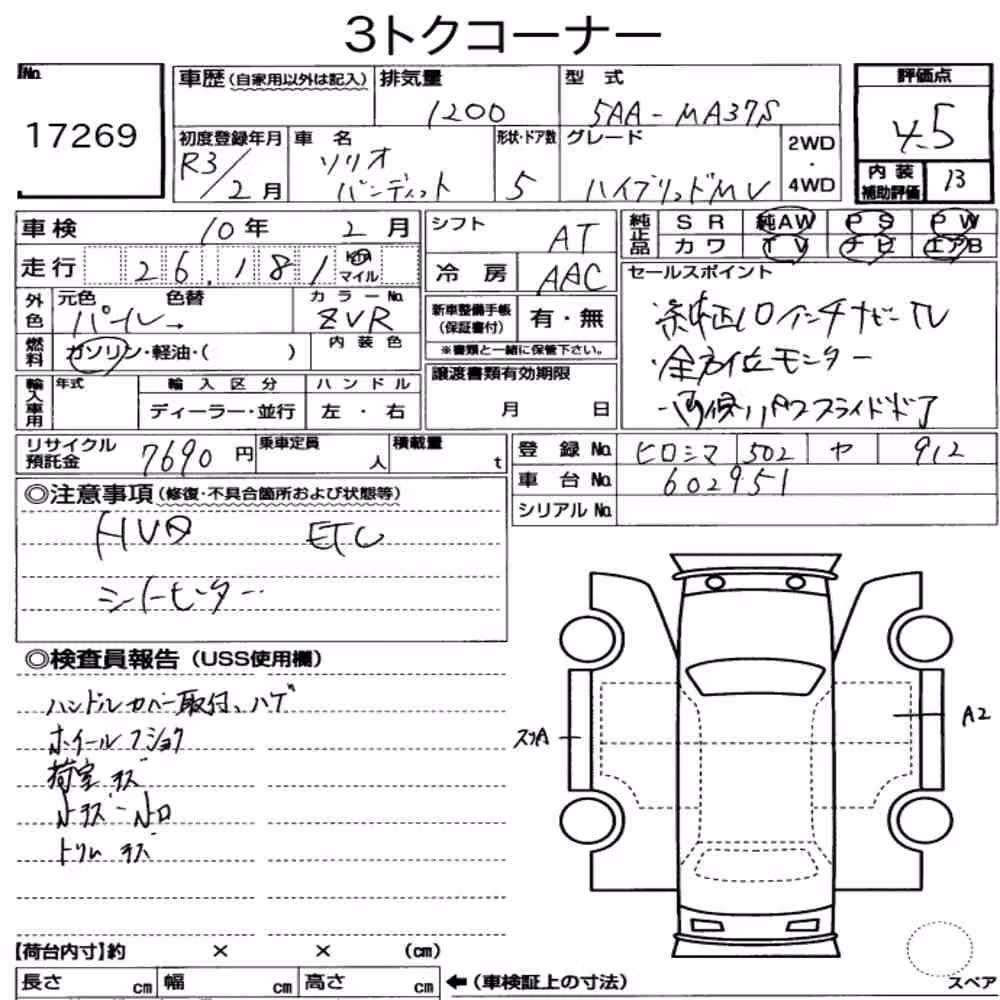 3トクコーナー
No.
17269
車歴 (自家用以外は記入)
排気量
1200
型 式
5AA-MA37S
評価点
4.5
初度登録年月
R3/2月
車 名
ソリオ
バンディット
形状・ドア数
5
グレード
ハイブリッドMV
2WD
・
4WD
内 装
補助評価
B
車検 10年 2月
シフト AT
純正品
SR 純AW PS PW
カワ TV ナビ エアB
走行 26,181 km
マイル
冷 房 AAC
セールスポイント
・純正10インチナビ-TV
・全方位モニター
・両側パワースライドドア
外色
元色 色替
パール
カラーNo.
ZVR
新車整備手帳
(保証書付)
有・無
※書類と一緒に保管下さい。
燃料
ガソリン・軽油・( )
内装色
輸入車用
年式
輸入区分
ハンドル
ディーラー・並行
左・右
譲渡書類有効期限
月 日
リサイクル
預託金
7690円
乗車定員
人
積載量
t
登 録 No. ヒロシマ 502 ヤ 912
車 台 No. 602951
シリアル No.
◎注意事項 (修復・不具合箇所および状態等)
HVD ETC
シートヒーター
◎検査員報告 (USS使用欄)
ハンドルカバー取付、ハゲ
ホイールフショク
荷室 キズ
小キズ 小凹
トリム キズ
A2
【荷台内寸】約 × × (cm)
長さ cm 幅 cm 高さ cm
←(車検証上の寸法)
スペア